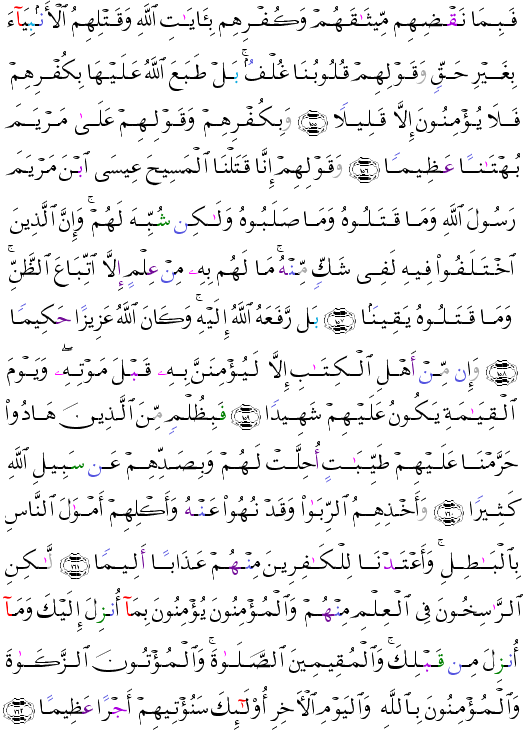 فَبِمَا نَقْضِهِم مِّيثَـٰقَهُمْ وَكُفْرِهِم بِـَٔايَـٰتِ ٱللَّهِ وَقَتْلِهِمُ ٱلْأَنۢبِيَآءَ
بِغَيْرِ حَقٍّ وَقَوْلِهِمْ قُلُوبُنَا غُلْفٌۢ ۚ بَلْ طَبَعَ ٱللَّهُ عَلَيْهَا بِكُفْرِهِمْ
فَلَا يُؤْمِنُونَ إِلَّا قَلِيلًا ﴿١٥٥﴾ وَبِكُفْرِهِمْ وَقَوْلِهِمْ عَلَىٰ مَرْيَمَ
بُهْتَـٰنًا عَظِيمًا ﴿١٥٦﴾ وَقَوْلِهِمْ إِنَّا قَتَلْنَا ٱلْمَسِيحَ عِيسَى ٱبْنَ مَرْيَمَ
رَسُولَ ٱللَّهِ وَمَا قَتَلُوهُ وَمَا صَلَبُوهُ وَلَـٰكِن شُبِّهَ لَهُمْ ۚ وَإِنَّ ٱلَّذِينَ
ٱخْتَلَفُوا۟ فِيهِ لَفِى شَكٍّ مِّنْهُ ۚ مَا لَهُم بِهِۦ مِنْ عِلْمٍ إِلَّا ٱتِّبَاعَ ٱلظَّنِّ ۚ
وَمَا قَتَلُوهُ يَقِينًۢا ﴿١٥٧﴾ بَل رَّفَعَهُ ٱللَّهُ إِلَيْهِ ۚ وَكَانَ ٱللَّهُ عَزِيزًا حَكِيمًا
﴿١٥٨﴾ وَإِن مِّنْ أَهْلِ ٱلْكِتَـٰبِ إِلَّا لَيُؤْمِنَنَّ بِهِۦ قَبْلَ مَوْتِهِۦ ۖ وَيَوْمَ
ٱلْقِيَـٰمَةِ يَكُونُ عَلَيْهِمْ شَهِيدًا ﴿١٥٩﴾ فَبِظُلْمٍ مِّنَ ٱلَّذِينَ هَادُوا۟
حَرَّمْنَا عَلَيْهِمْ طَيِّبَـٰتٍ أُحِلَّتْ لَهُمْ وَبِصَدِّهِمْ عَن سَبِيلِ ٱللَّهِ
كَثِيرًا ﴿١٦٠﴾ وَأَخْذِهِمُ ٱلرِّبَوٰا۟ وَقَدْ نُهُوا۟ عَنْهُ وَأَكْلِهِمْ أَمْوَٰلَ ٱلنَّاسِ
بِٱلْبَـٰطِلِ ۚ وَأَعْتَدْنَا لِلْكَـٰفِرِينَ مِنْهُمْ عَذَابًا أَلِيمًا ﴿١٦١﴾ لَّـٰكِنِ
ٱلرَّٰسِخُونَ فِى ٱلْعِلْمِ مِنْهُمْ وَٱلْمُؤْمِنُونَ يُؤْمِنُونَ بِمَآ أُنزِلَ إِلَيْكَ وَمَآ
أُنزِلَ مِن قَبْلِكَ ۚ وَٱلْمُقِيمِينَ ٱلصَّلَوٰةَ ۚ وَٱلْمُؤْتُونَ ٱلزَّكَوٰةَ
وَٱلْمُؤْمِنُونَ بِٱللَّهِ وَٱلْيَوْمِ ٱلْـَٔاخِرِ أُو۟لَـٰٓئِكَ سَنُؤْتِيهِمْ أَجْرًا عَظِيمًا ﴿١٦٢﴾